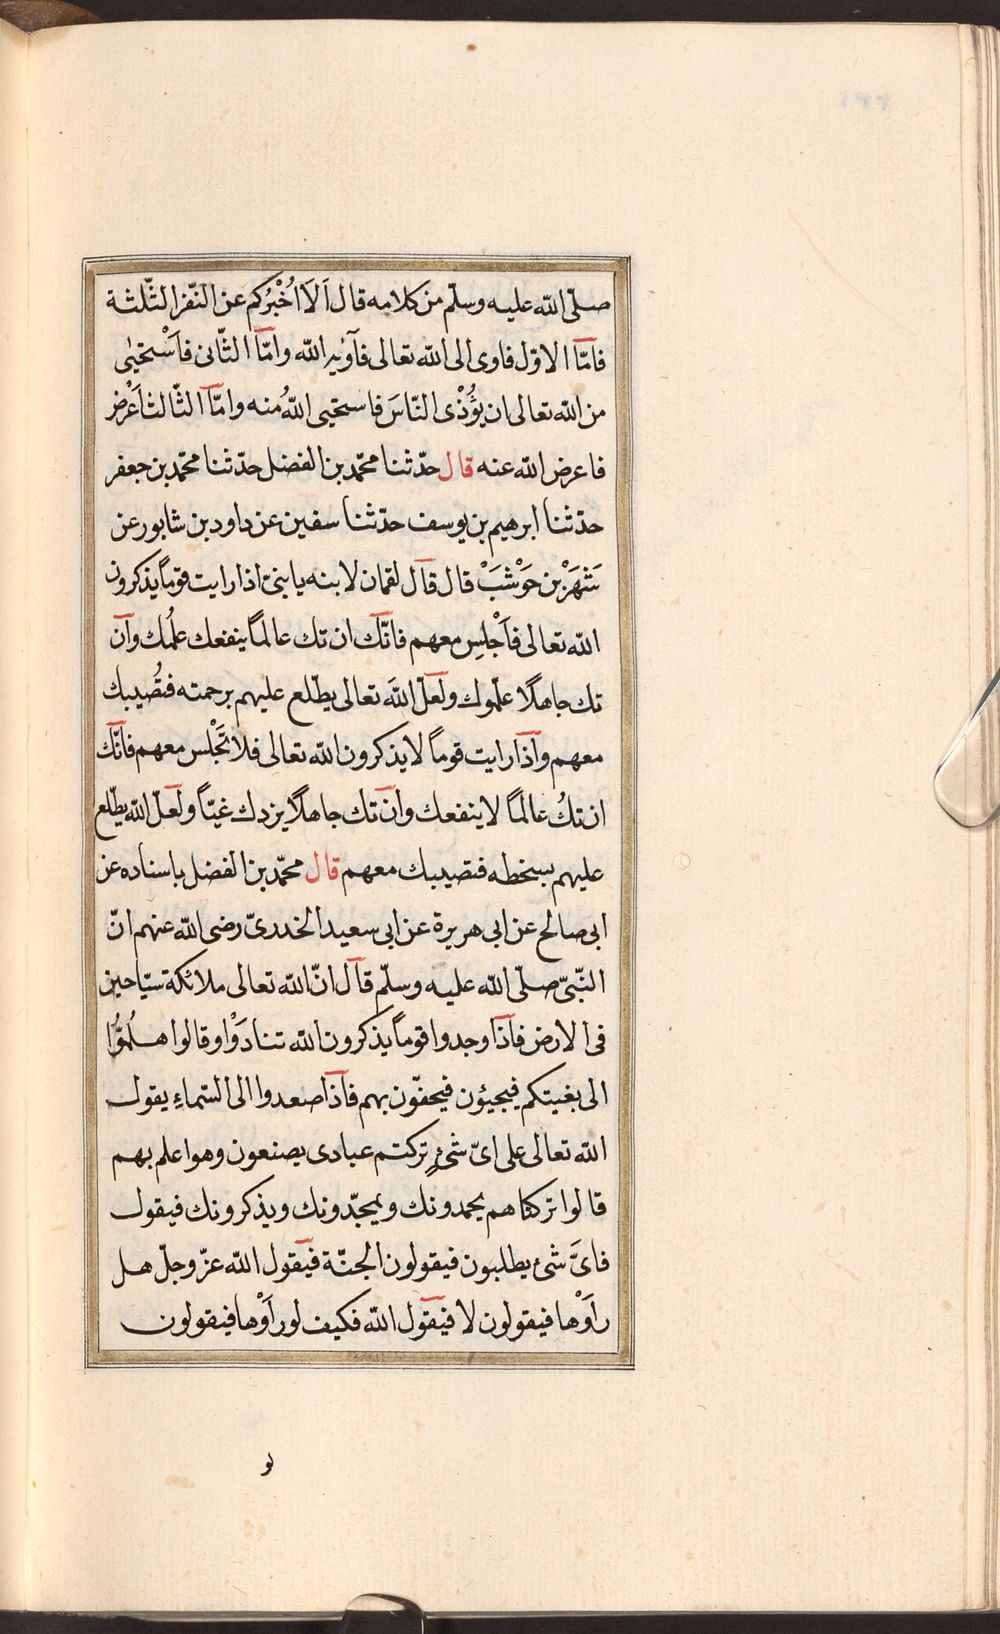 صلّى الله عليه وسلّم من كلامه قال اَلَا اُخْبِرُكم عن النّفر الثّلثة
فامّا الاوّل فاوى الى الله تعالى فآويه الله وامّا الثّانى فاَسْتحيٰى
من الله تعالى ان يؤُذْى النّاسَ فاستحيى اللهُ منه وامّا الثّالث اَعْرض
فاعرض الله عنه قال حدّثنا محمّد بن الفضل حدّثنا محمّد بن جعفر
حدّثنا ابرهيم بن يوسف حدّثنا سفين عن داود بن شابور عن
شَهْرَ بْن حَوْشَبْ قال قال لقمان لابنه يا بنىّ اذا رايت قوماً يذكرون
الله تعالى فاَجْلِس معهم فانّك ان تك عالماً ينفعك علمُك وان
تك جاهلًا علّموك ولعلّ اللهَ تعالى يطّلع عليهم برحمته فتُصيبك
معهم واذا رايت قوماً لا يذكرون الله تعالى فلا تَجْلس معهم فانّك
ان تكُ عالماً لا ينفعك وان تك جاهلًا يزدك غيّاً ولعلّ الله يطّلع
عليهم بسخطه فتصيبك معهم قال محمّد بن الفضل باسناده عن
ابى صالح عن ابى هريرة عن ابى سعيد الخدرىّ رضى الله عنهم انّ
النّبىّ صلّى الله عليه وسلّم قال انّ لله تعالى ملائكة سيّاحين
فى الارض فاذا وجدوا قوماً يذكرون الله تنادَوْا وقالوا هلُمُّوا
الى بغيتكم فيجيئون فيحفّون بهم فاذا صعدوا الى السّماءِ يقول
الله تعالى على اىّ شىءٍ تركتم عبادى يصنعون وهو اعلم بهم
قالوا تركناهم يحمدونك ويمجّدونك ويذكرونك فيقول
فاىَّ شىء يطلبون فيقولون الجنّة فيقول الله عزّ وجلّ هل
راَوْها فيقولون لا فيقول الله فكيف لو راَوْها فيقولون
لو